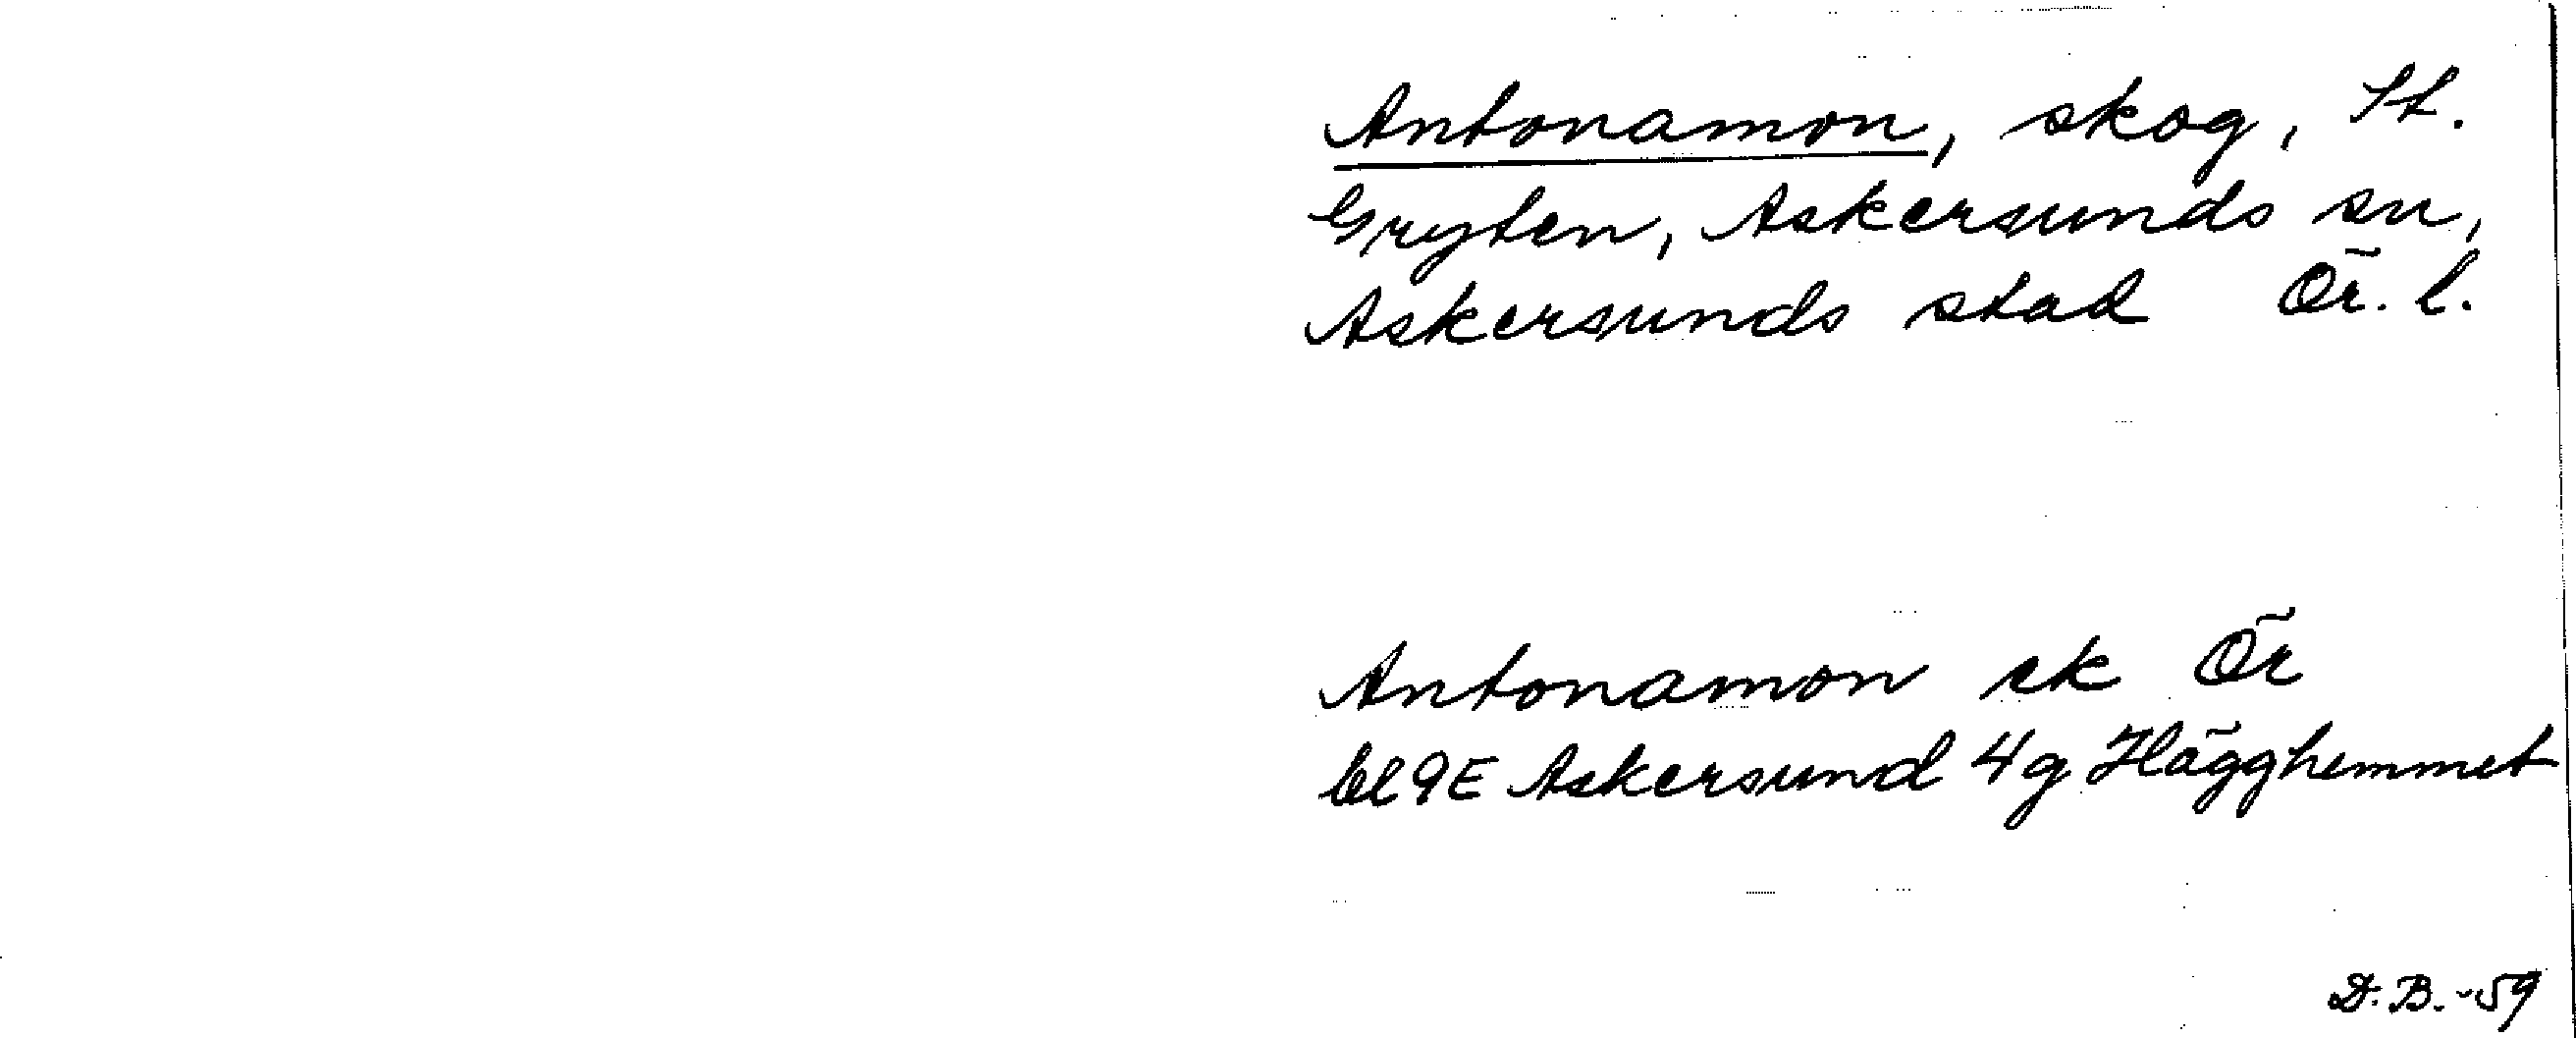 Antonamon, skog, St.
Gryten, Askersunds sn,
Askersunds stad Ör. l.
Antonamon ek Ör
bl 9E Askersund 4g Hägghemmet
D.B.-59